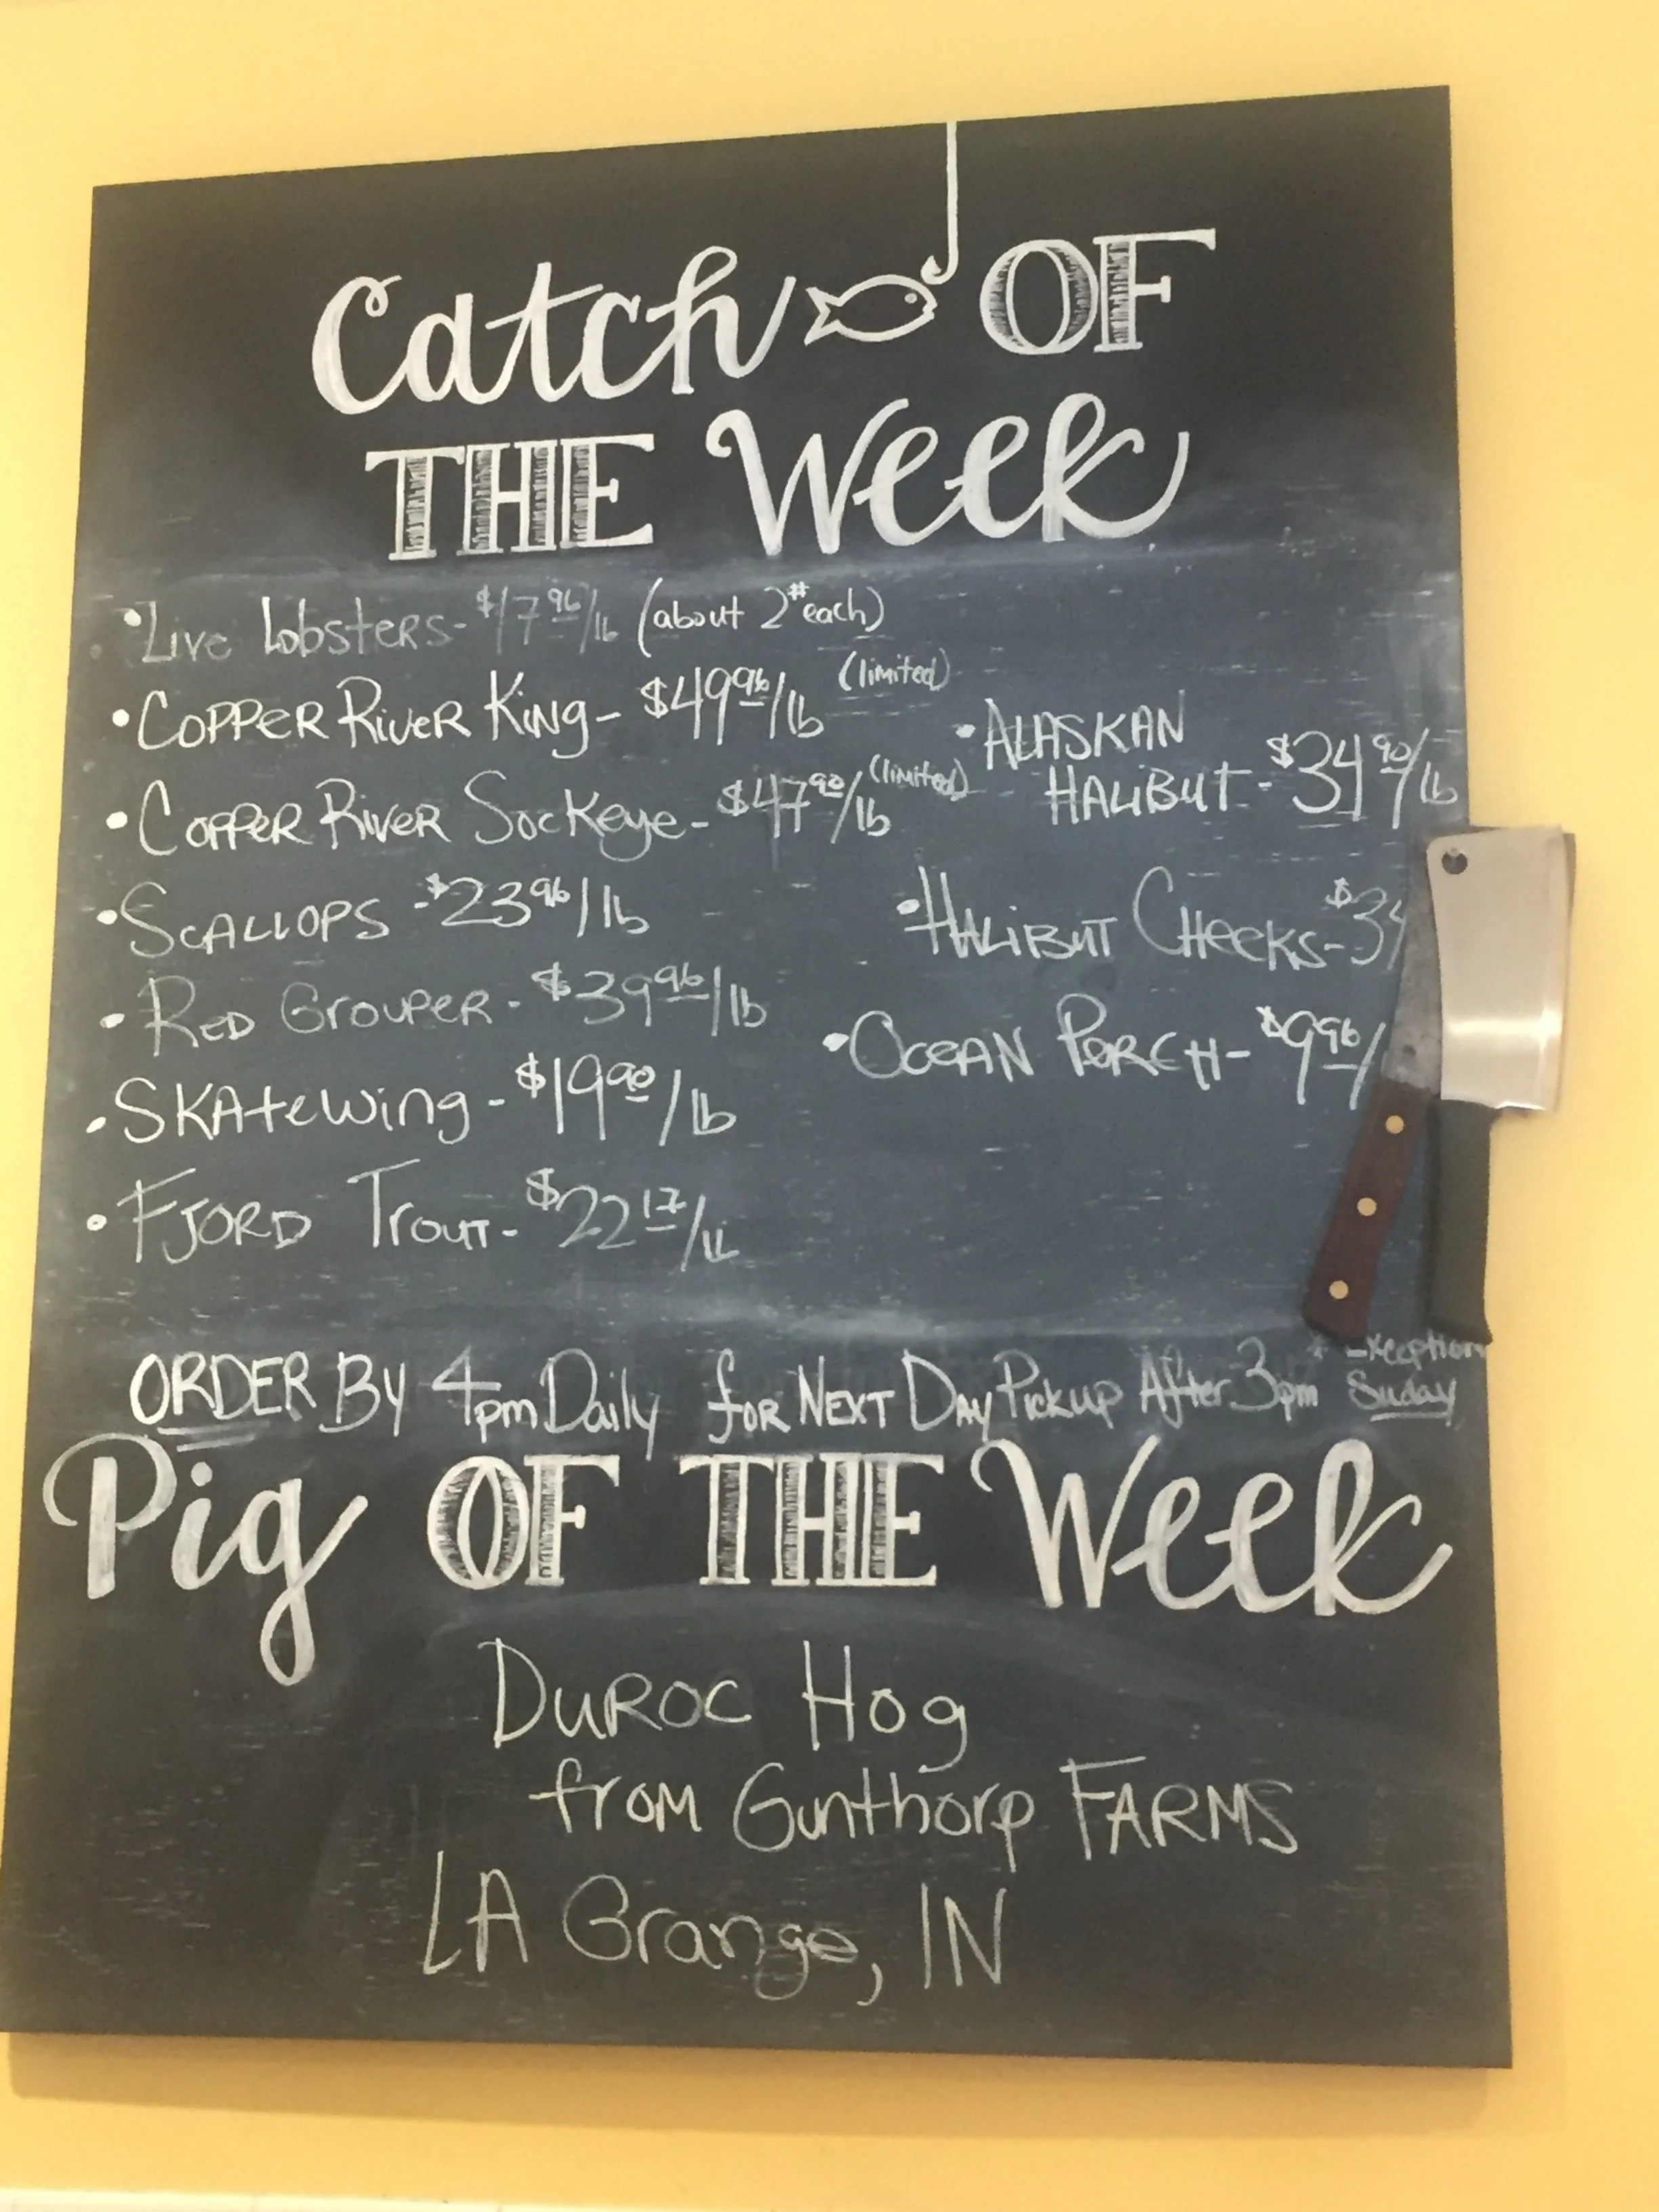 Catch OF
THE Week
• Live Lobsters- $17.96/lb (about 2# each)
• Copper River King- $49.96/lb (limited)
• Copper River Sockeye- $47.90/lb (limited)
• Scallops - $23.96/lb
• Red Grouper - $39.96/lb
• Skatewing - $19.90/lb
• Fjord Trout- $22.17/lb
• Alaskan
Halibut - $34.90/lb
• Halibut Cheeks- $34
• Ocean Perch- $9.96/
* Exception
ORDER By 4pm Daily for Next Day Pickup After 3pm Suday
Pig OF THE Week
Duroc Hog
from Gunthorp FARMS
LA Grange, IN